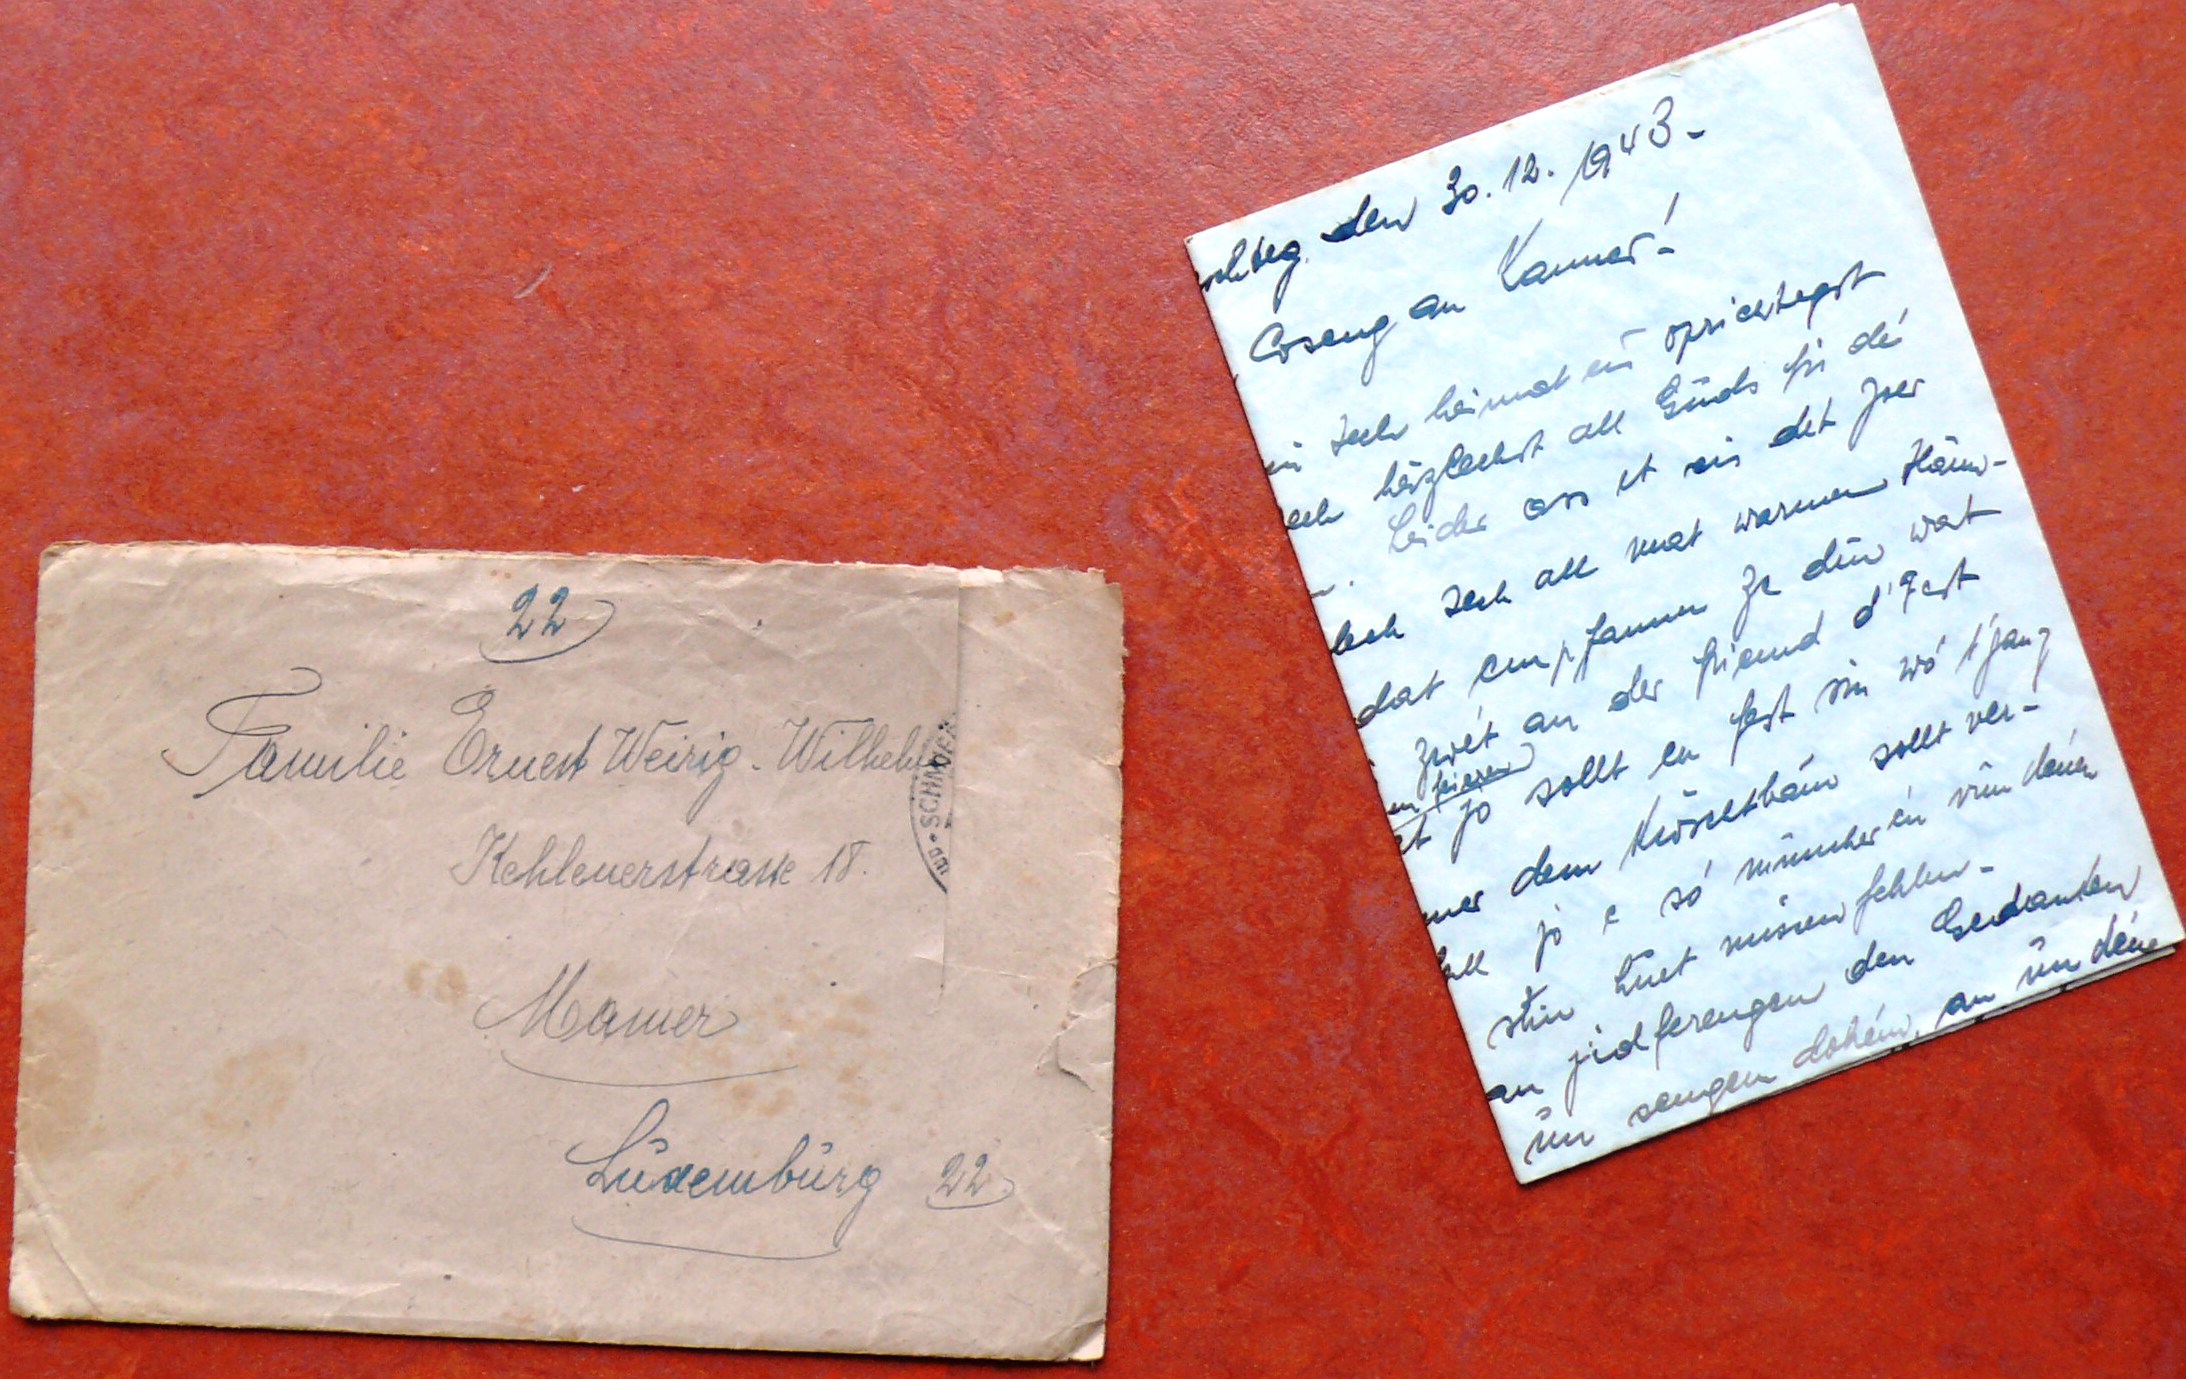 22
Familie Ernest Weirig-Wilhelm
Kehlenerstrasse 18.
Mamer
Lüxembürg 22
SCHMÜCK
den 30. 12. 1943.-
Coseng an Kanner!
Iech heimat eis oprichtegst
hèrzlechst all Gūds fir déi
Leider ass et eis det Joer
Iech all mat warmen Hänn-
dat empfannen ze dūn wat
zwét an der friemd d'Fest
en feieren
et jo sollt en fest sin wó t'ganz
dem Kröschtbām sollt ver-
all jo e só muncher ēn vūn dénen
stin hūet missen fehlen-
an jidferengem den Gedanken
ūn sengem dohém, an ūn déne